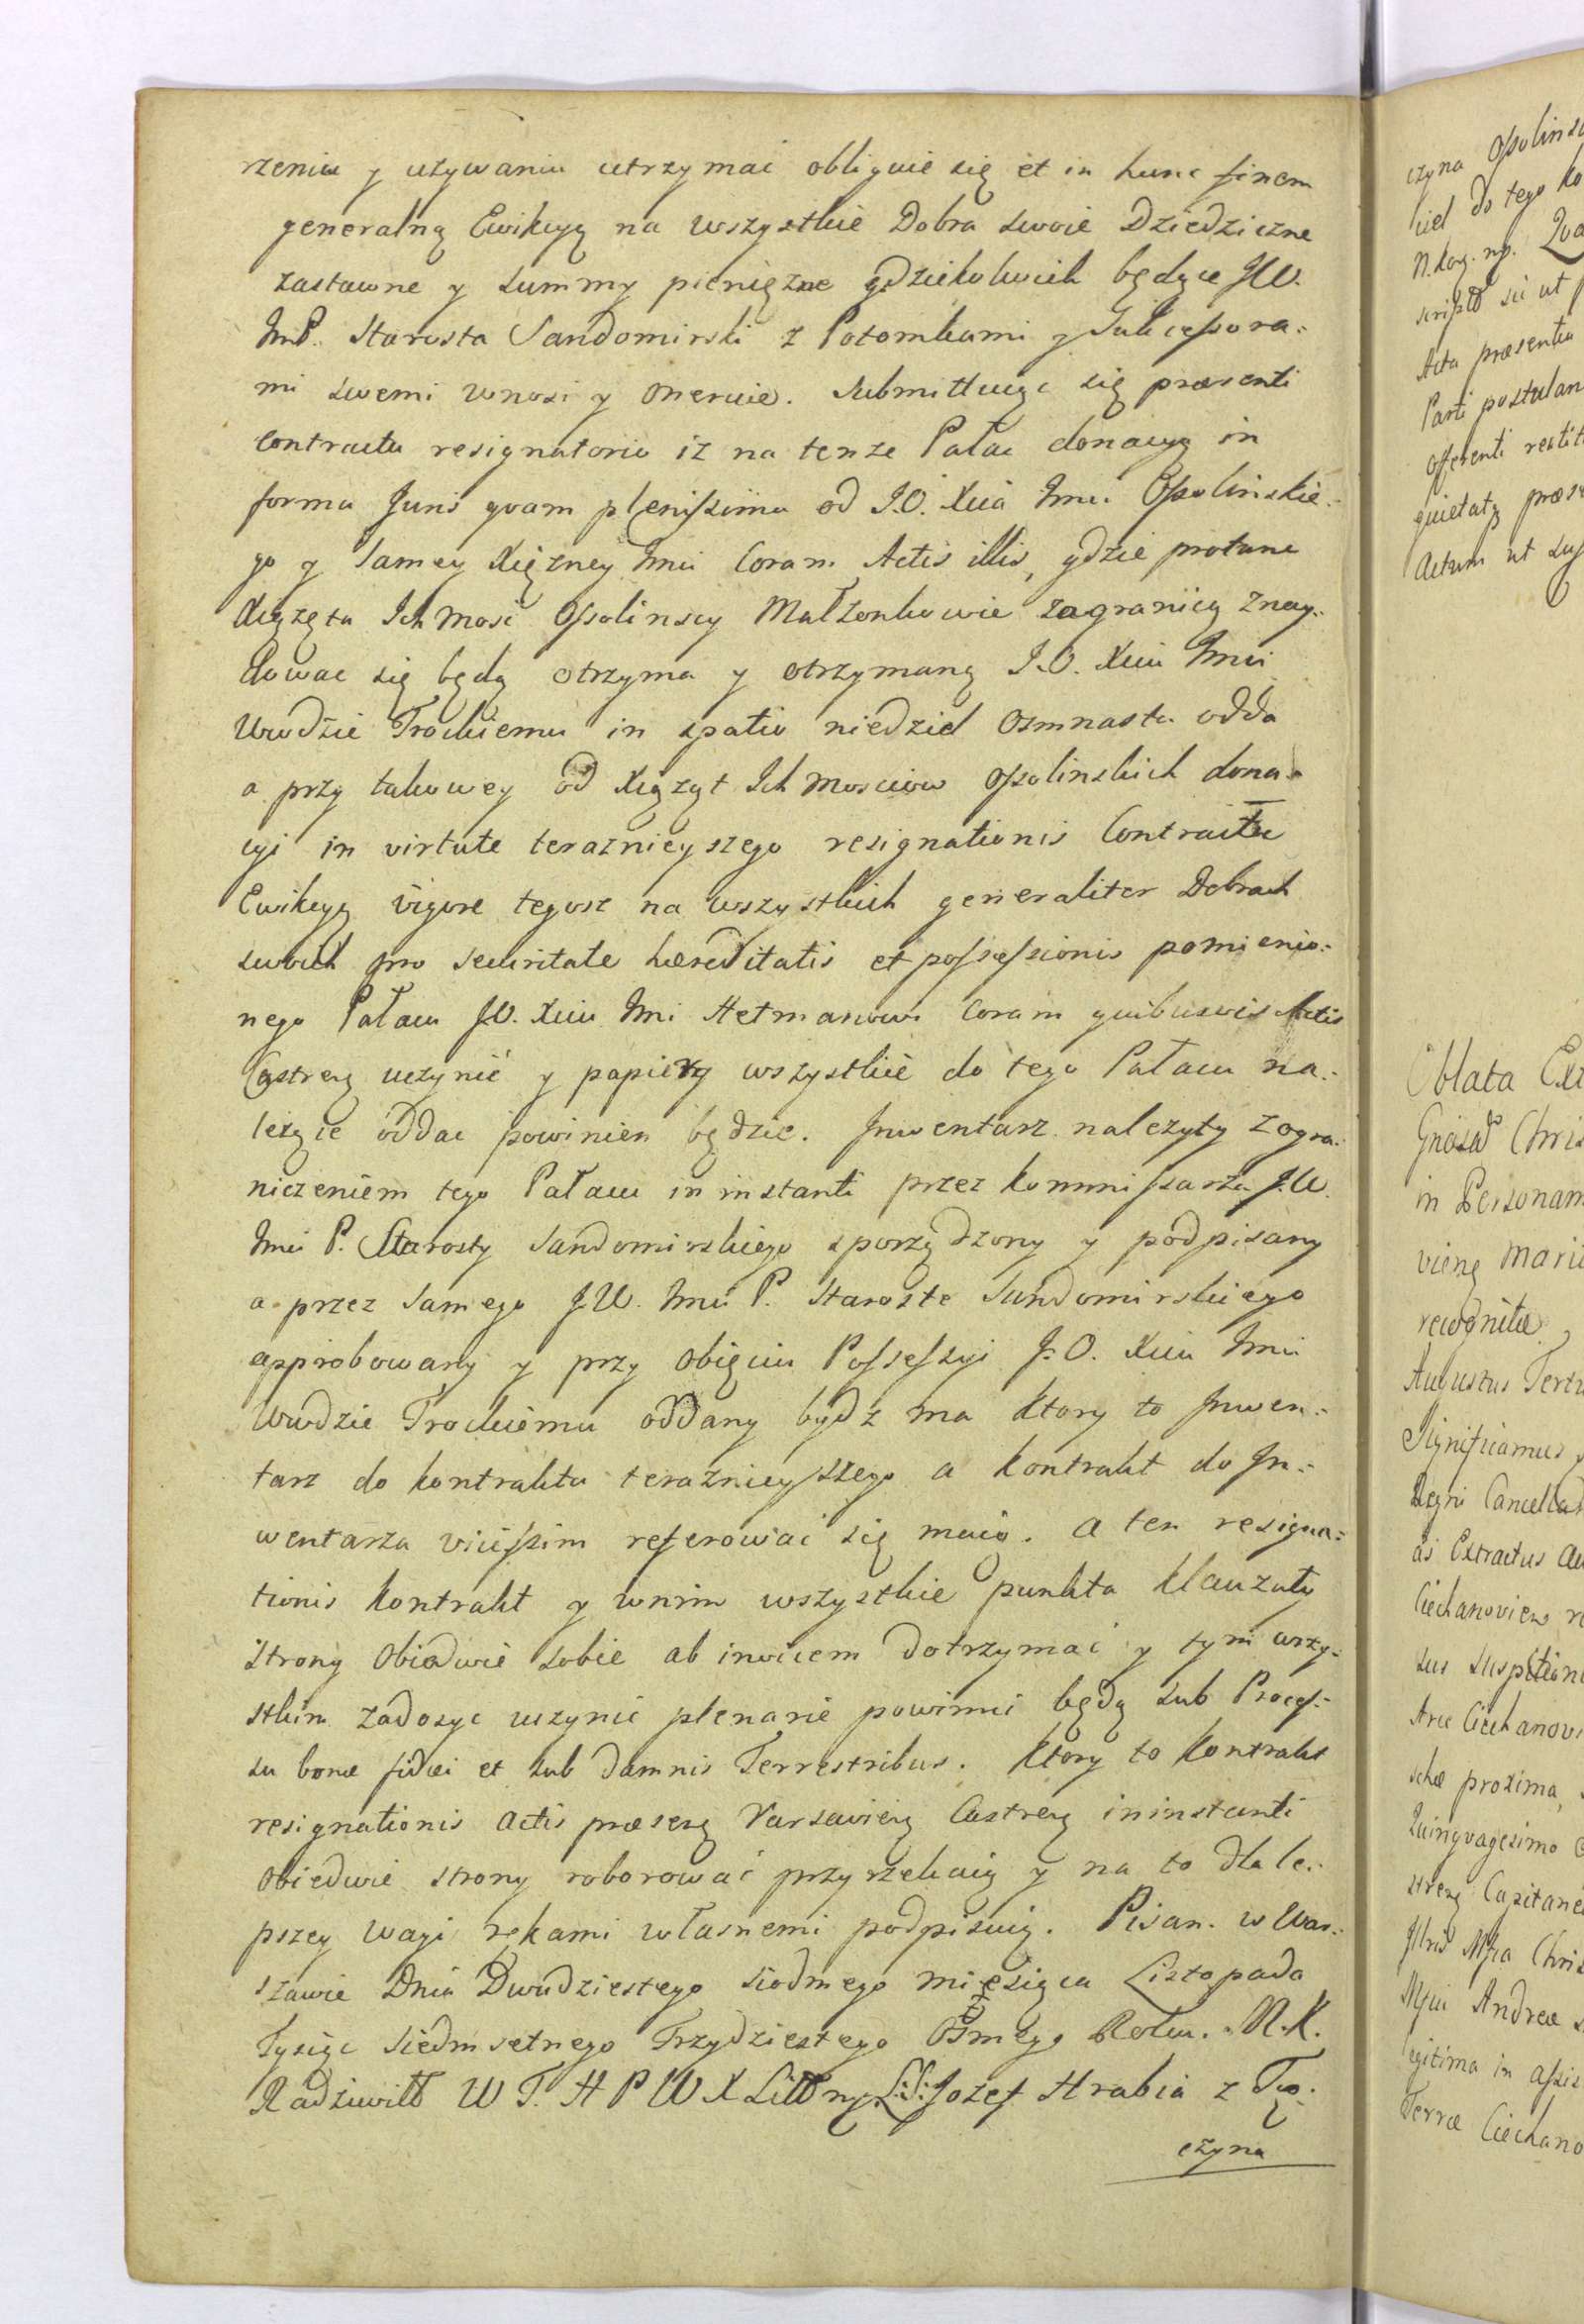 rzeniu y uzywaniu utrzymać obliguie się et in hunc finem
generalną Ewikcyą na wszystkie Dobra swoie Dziedziczne
zastawne y summy pienięzne gdziekolwiek będące JW.
ImP. Starosta Sandomirski z Potomkami y Sukcessora:
mi swemi wnosi y oneruie. Submittuiąc się præsenti
Contractu resignatorio iz na tenze Pałac donacyą in
forma Juris qvam plenissima od J.O. Xcia Imci Ossolinskie:
go y Samey Xięzney Imci Coram Actis illis, gdzie protunc
Xiązęta Ich Mosć Ossolinscy Małzonkowie zagranicą znay:
dowac się będą otrzyma y otrzymaną J.O. Xciu Imci
Wwodzie Trockiemu in spatio niedziel Osmnastu odda
a przy takowey od Xiąząt Ich Mosciow Ossolinskich dona:
cyi in virtute teraznieyszego resignationis Contractu
Ewikcyą vigore tegosz na wszystkich generaliter Dobrach
swoich pro securitate hæreditatis et possessionis pomienio:
nego Pałacu J.O. Xciu Imci Hetmanowi Coram quibusvis Actis
Castren̄ uczynić y papiery wszystkie do tego Pałacu na:
lezące oddac powinien będzie. Inwentarz nalezyty z ogra:
niczeniem tego Pałacu in instanti przez kommissarza J.W.
Imci P. Starosty Sandomirskiego sporządzony y podpisany
a przez Samego J.W. Imci P. Staroste Sandomirskiego
approbowany y przy obięciu Possessyi J.O. Xciu Imci
Wwdzie Trockiemu oddany bydz ma ktory to Inwen:
tarz do kontraktu teraznieyszego a kontrakt do In:
wentarza vicissim referować się maią. a ten resigna:
tionis kontrakt y wnim wszystkie punkta Klauzuły
strony obiedwie sobie ab invicem dotrzymać y tym wszy:
stkim zadosyc uczynic plenarie powinni będą sub Proces:
su bonæ fidei et sub damnis Terrestribus. ktory to kontrakt
resignationis Actis præsen̄ Varsavien̄ Castren̄ ininstanti
obiedwie strony roborować przyrzekaią y na to dla le:
pszey wagi rękami własnemi podpisuią. Pisan. w War:
szawie Dnia Dwudziestego siodmego miesiąca Listopada
Tysiąc siedmsetnego Trzydziestego Osmego Roku. M.K.
Radziwiłł W T. H P W X Littny L.S. Jozef Hrabia z Tę:
czyna
czyna Ossolinsk
ciel do tego ko
scripto sic ut
Acta præsentia
Parti postulan
offerenti restit
quietatq̄ præs
Actum ut su
Oblata Ex
in Personam
vien̄ Mari
recognitæ
Augustus Terti
Significamus
Regni Cancella
as Extractus
Ciechanovien̄
sus suspition
Arce Ciechanov
schæ proxima,
Quinqvagesimo
stren̄ Capitane
Andreæ
legitima in assis
Terræ Ciechano